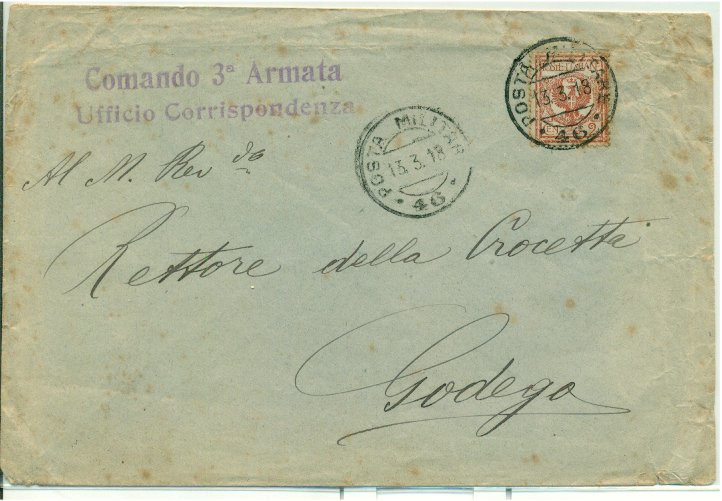 Comando 3ª Armata
Ufficio Corrispondenza
POSTA MILITARE
13.3.18
46
POSTA MILITAR
13.3.18
46
Al M. Rev do
Rettore della Crocetta
Godego